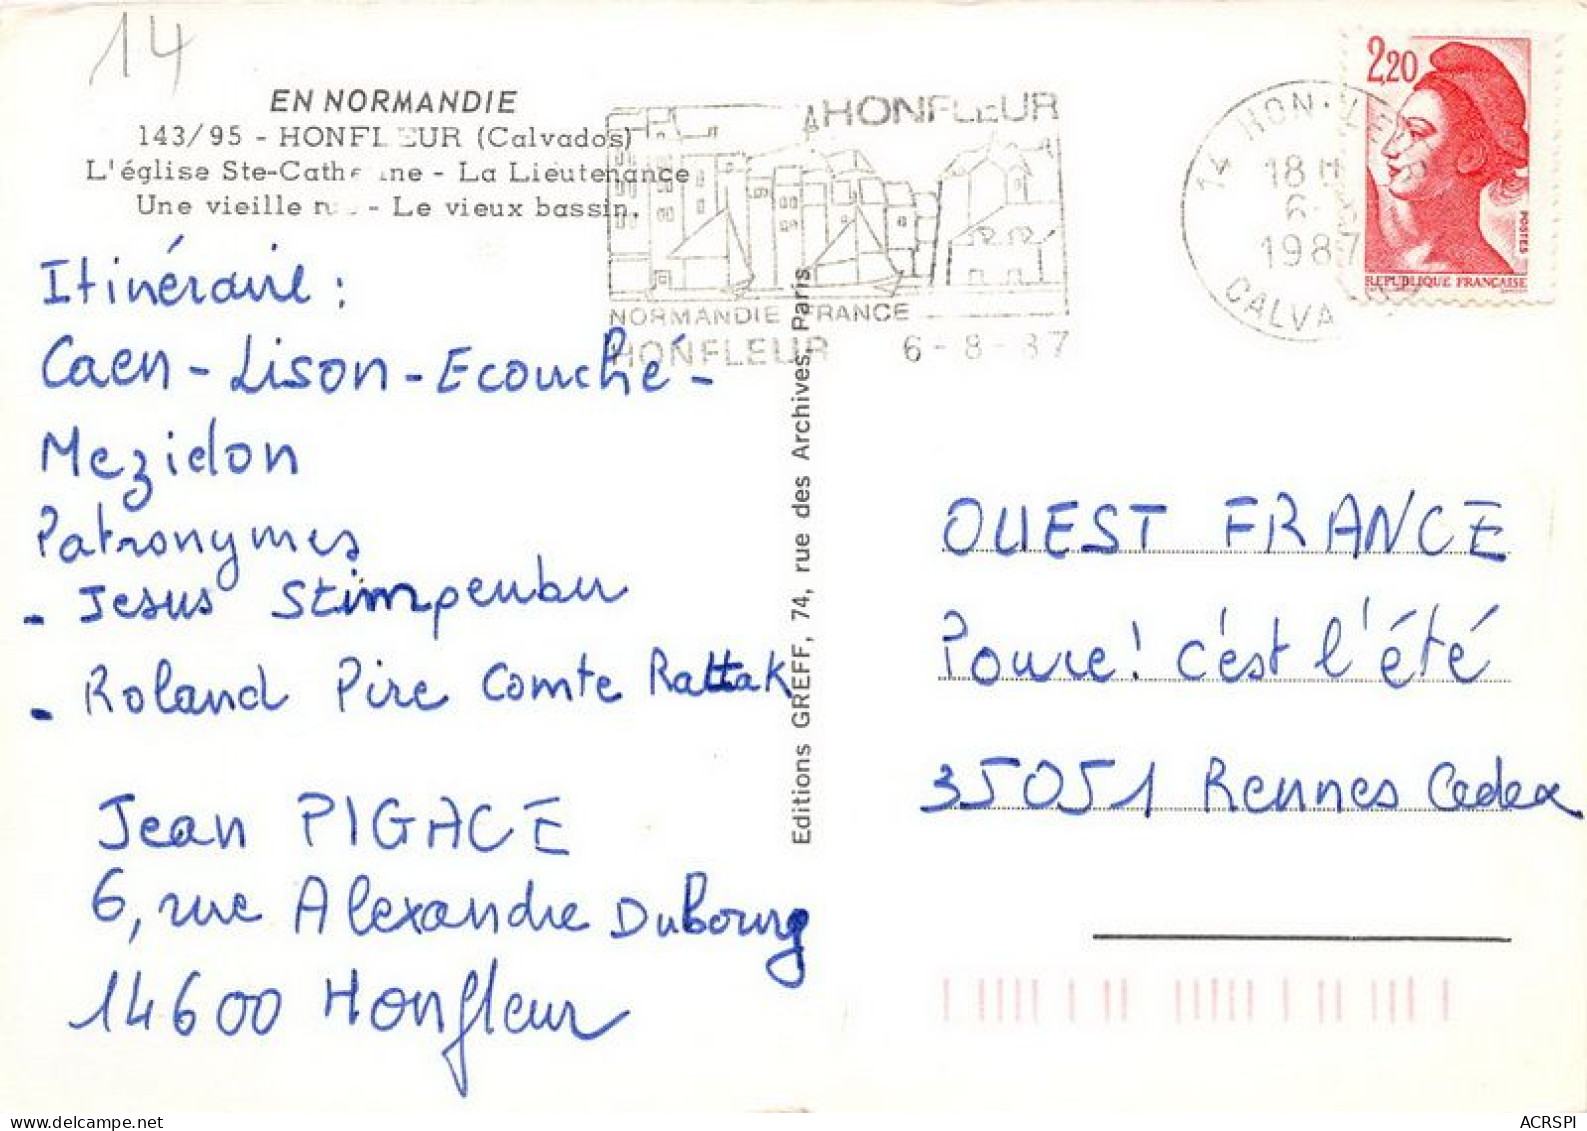 14
EN NORMANDIE
143/95 - HONFLEUR (Calvados)
L'église Ste-Catherine - La Lieutenance
Une vieille rue - Le vieux bassin.
HONFLEUR
NORMANDIE FRANCE
HONFLEUR 6-8-87
14 HONFLEUR
18 H
6-8
1987
CALVADOS
2,20
POSTES
REPUBLIQUE FRANCAISE
Itinéraire :
Caen - Lison - Ecouché -
Mezidon
Patronymes
- Jesus Stimpenbur
- Roland Pire Comte Rattak
Jean PIGACE
6, rue Alexandre Dubourg
14600 Honfleur
Editions GREFF, 74, rue des Archives, Paris
OUEST FRANCE
Pouce! c'est l'été
35051 Rennes Cedex
ACRSPI